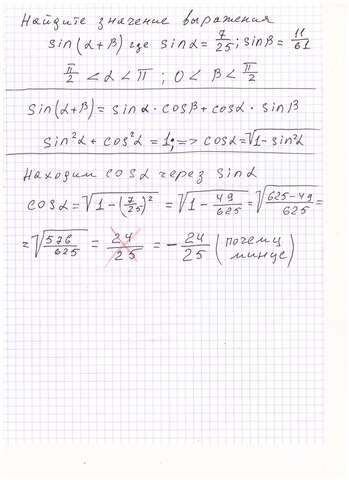 Найдите значение выражения
sin(α+β) где sinα = 7/25; sinβ = 11/61
π/2 < α < π ; 0 < β < π/2
sin(α+β) = sinα · cosβ + cosα · sinβ
sin²α + cos²α = 1; => cosα = √1-sin²α
Находим cosα через sinα
cosα = √1-(7/25)² = √1-49/625 = √625-49/625 =
= √576/625 = 24/25 = -24/25 (почему минус)